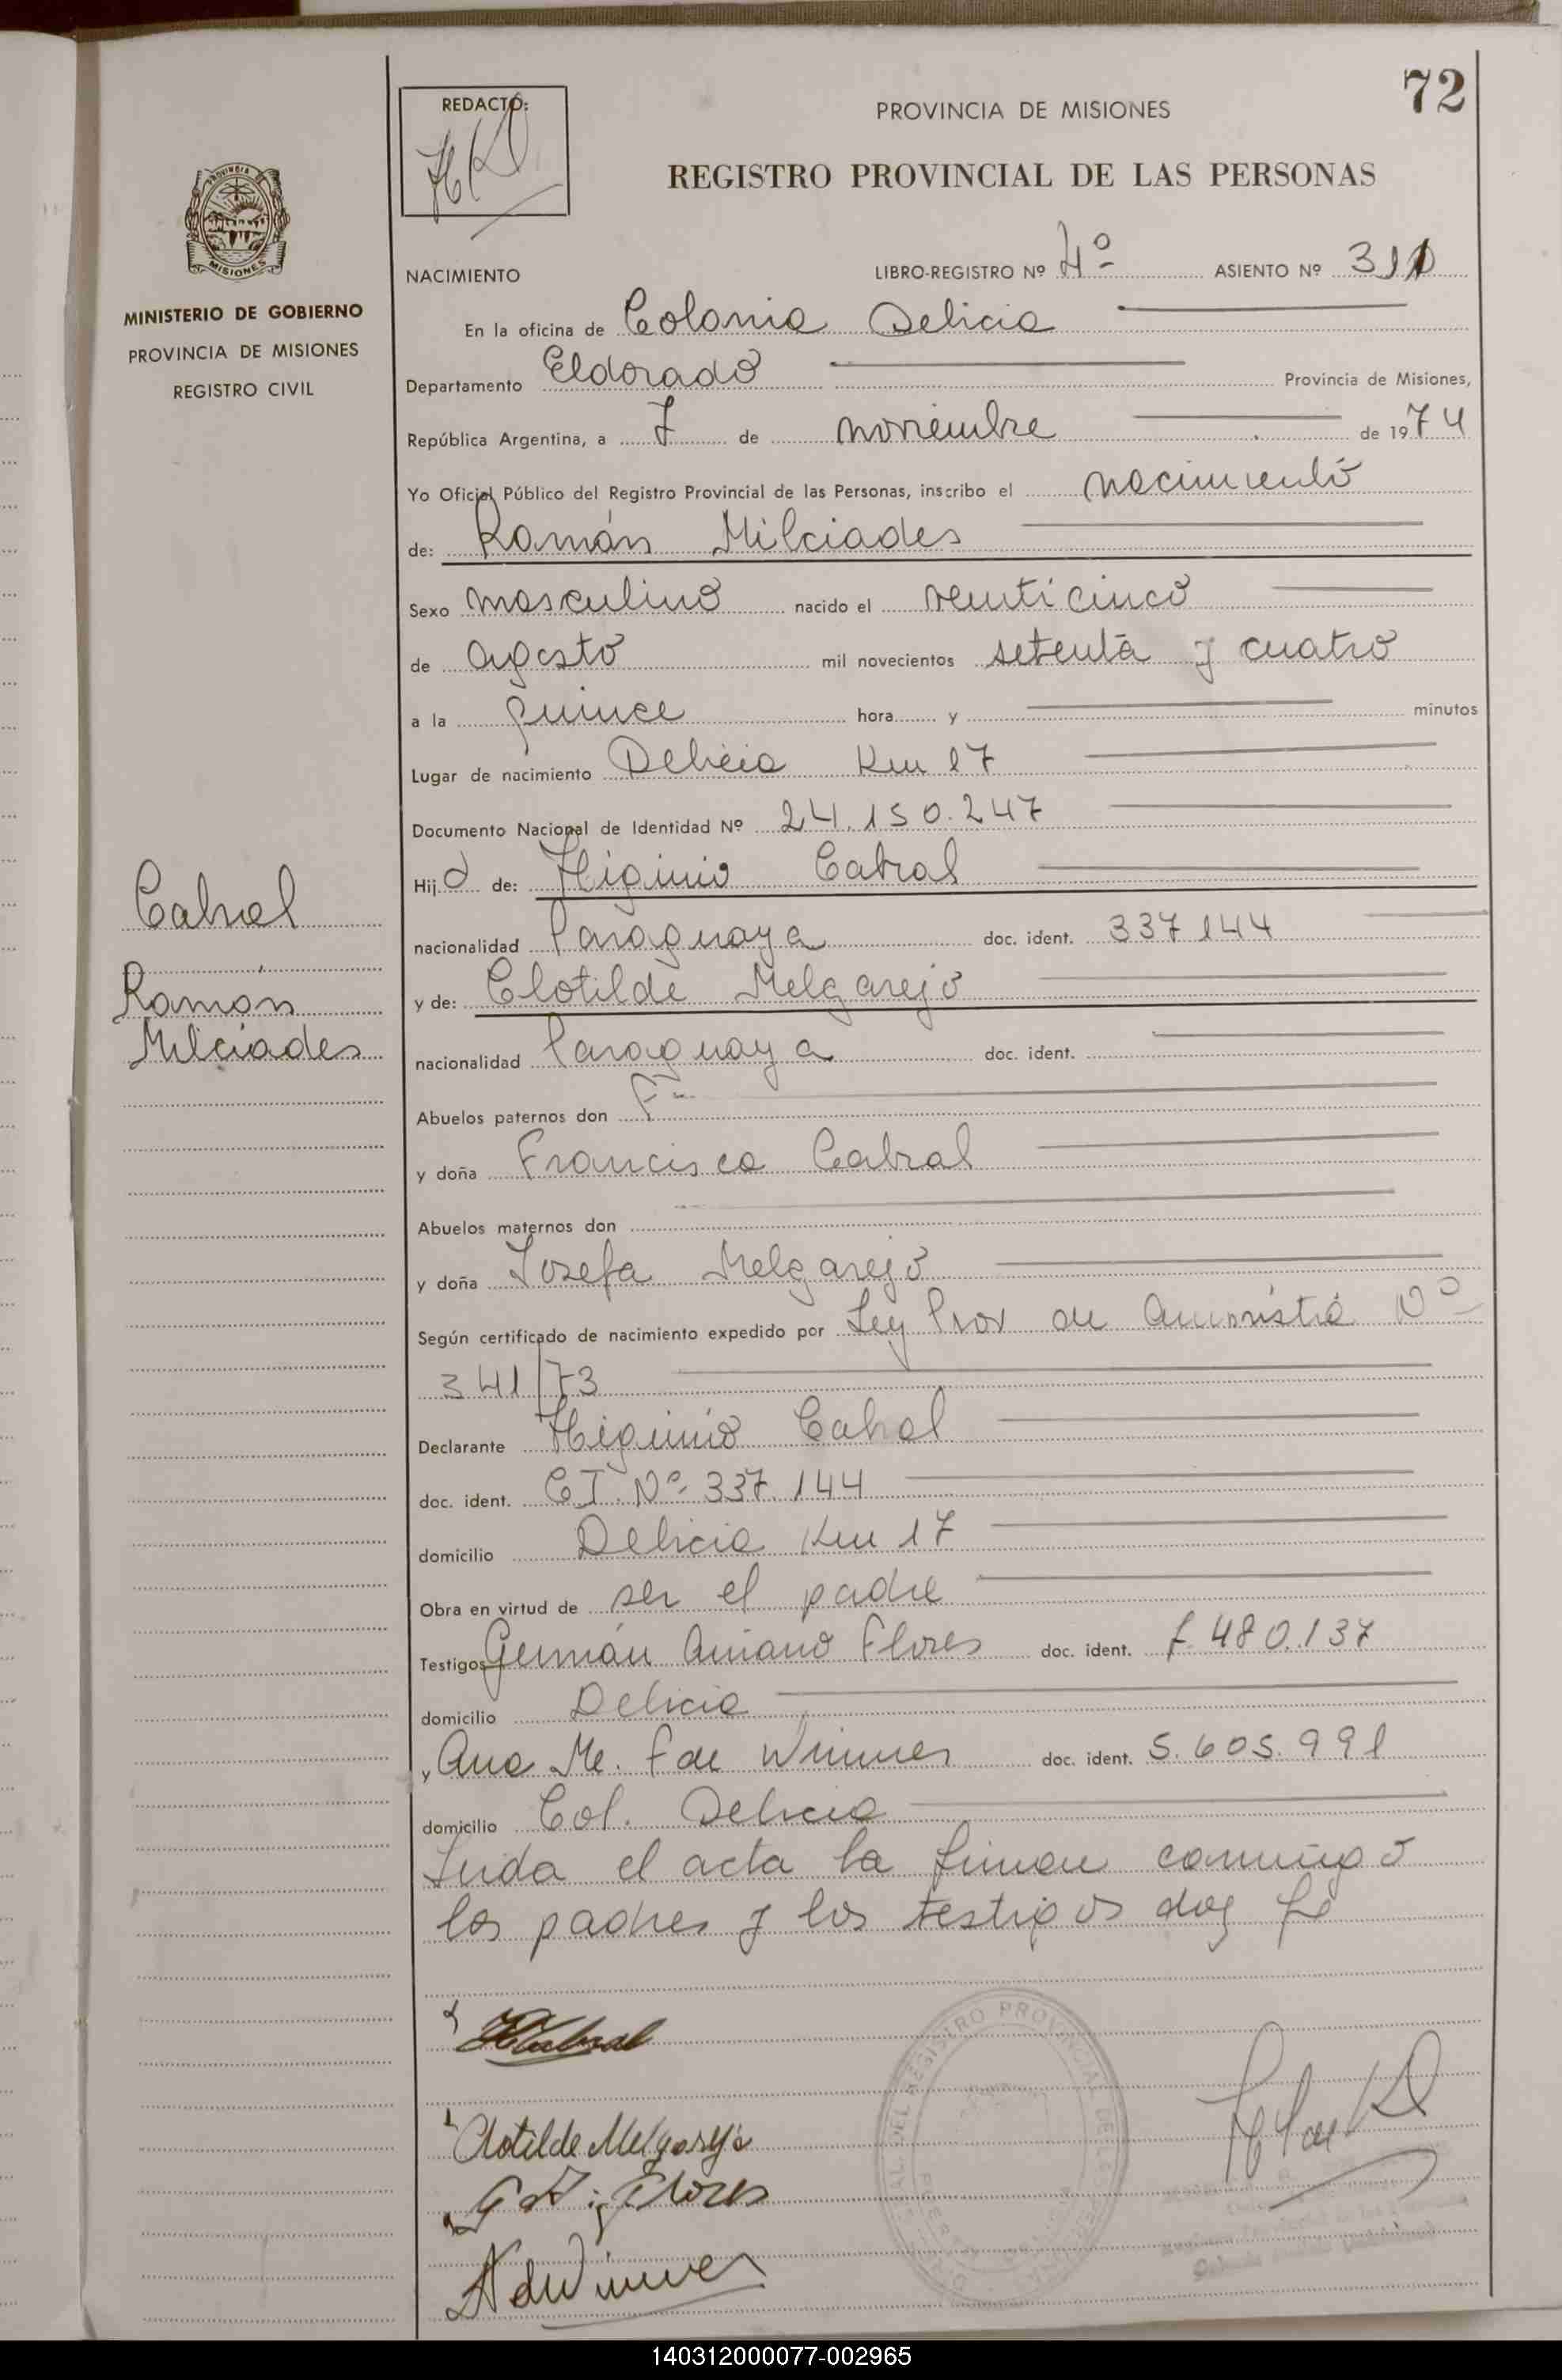 72
REDACTÓ:
PROVINCIA DE MISIONES
REGISTRO PROVINCIAL DE LAS PERSONAS
MISIONES
MINISTERIO DE GOBIERNO
PROVINCIA DE MISIONES
REGISTRO CIVIL
NACIMIENTO LIBRO-REGISTRO Nº 4º ASIENTO Nº 311
En la oficina de Colonia Delicia
Departamento Eldorado Provincia de Misiones,
República Argentina, a 7 de noviembre de 1974
Yo Oficial Público del Registro Provincial de las Personas, inscribo el nacimiento
de: Ramón Milciades
Sexo masculino nacido el venticinco
de agosto mil novecientos setenta y cuatro
a la quince hora y minutos
Lugar de nacimiento Delicia Km 17
Documento Nacional de Identidad Nº 24.150.247
Hijo de: Higinio Cabral
nacionalidad Paraguaya doc. ident. 337144
y de: Clotilde Melgarejo
nacionalidad Paraguaya doc. ident.
Abuelos paternos don
y doña Francisca Cabral
Abuelos maternos don
y doña Josefa Melgarejo
Según certificado de nacimiento expedido por Ley Prov de Amnistia Nº
341/73
Declarante Higinio Cabral
doc. ident. CI. Nº 337.144
domicilio Delicia Km 17
Obra en virtud de ser el padre
Testigos Germán Amano Flores doc. ident. 7.480.137
domicilio Delicia
y Ana M. F de Winner doc. ident. 5.605.991
domicilio Col. Delicia
Leida el acta la firman conmigo
los padres y los testigos doy fe
Cabral
Ramón
Milciades
HCabral
Clotilde Melgarejo
Flores
A de Winner
REGISTRO PROVINCIAL DE LAS PERSONAS
140312000077-002965